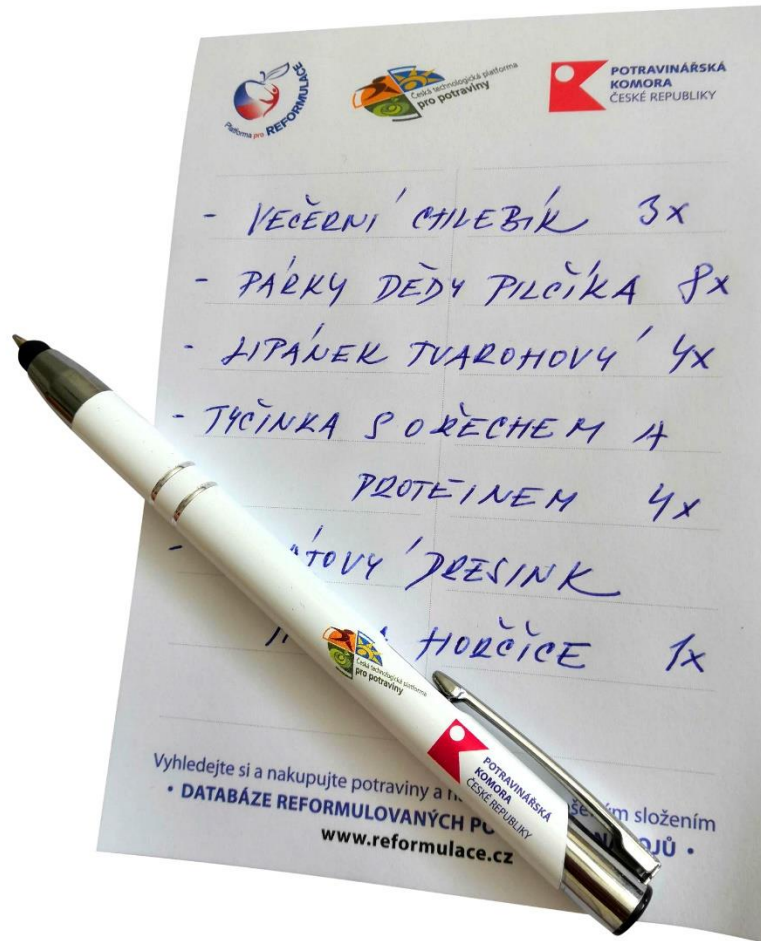 Platforma pro REFORMULACE
Česká technologická platforma
pro potraviny
POTRAVINÁŘSKÁ
KOMORA
ČESKÉ REPUBLIKY
- VEČERNÍ CHLEBÍK 3x
- PÁRKY DĚDY PILČÍKA 8x
- LIPÁNEK TVAROHOVÝ 4x
- TYČINKA S OŘECHEM A
PROTEINEM 4x
- DRESINK
HOŘČICE 1x
Česká technologická platforma
pro potraviny
POTRAVINÁŘSKÁ
KOMORA
ČESKÉ REPUBLIKY
Vyhledejte si a nakupujte potraviny a složením
• DATABÁZE REFORMULOVANÝCH •
www.reformulace.cz